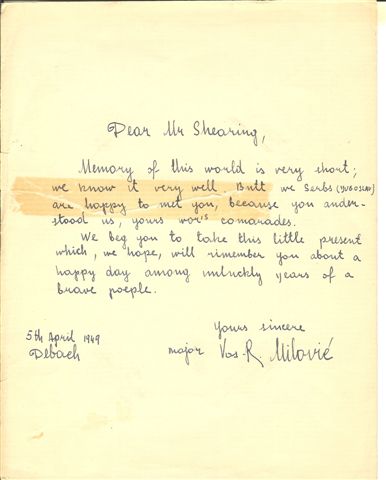 Dear Mr Shearing,
Memory of this world is very short;
we know it very well. Butt we Serbs (YUGOSLAV)
are happy to met you, because you under-
stood us, yours wor's comarades.
We beg you to take this little present
which, we hope, will rimember you about a
happy day among unluckly years of a
brave poeple.
Yours sincere
5th April 1949
major Vos. R. Milović
Debach